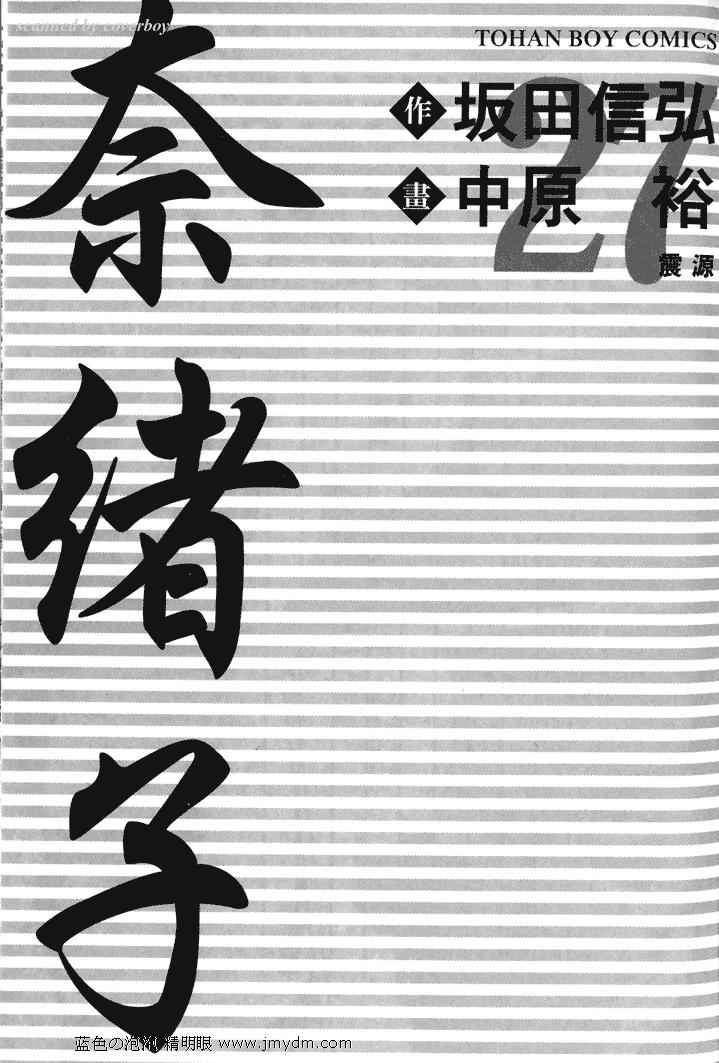 scanned by coverboy
TOHAN BOY COMICS
27
作 坂田信弘
畫 中原 裕
震源
奈緒子
蓝色の泡泡 精明眼 www.jmydm.com